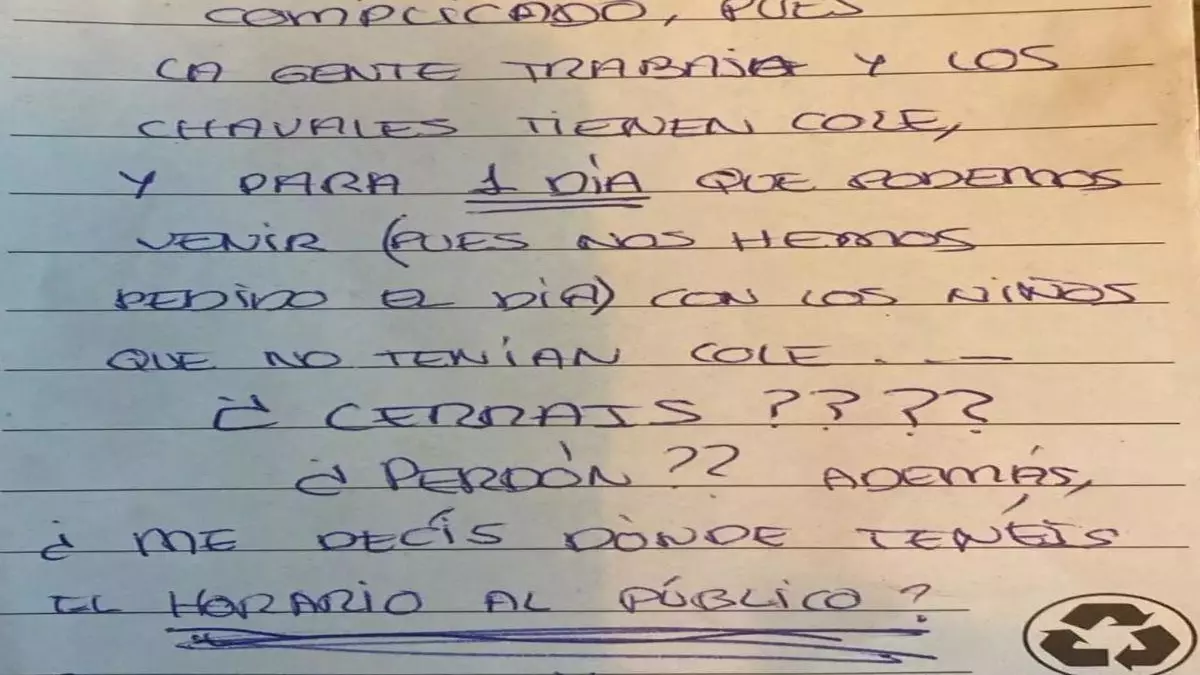 COMPLICADO, PUES
LA GENTE TRABAJA Y LOS
CHAVALES TIENEN COLE,
Y PARA 1 DÍA QUE PODEMOS
VENIR (PUES NOS HEMOS
PEDIDO EL DÍA) CON LOS NIÑOS
QUE NO TENÍAN COLE . . —
¿ CERRAIS ????
¿ PERDÓN ?? ADEMÁS,
¿ ME DECÍS DÓNDE TENÉIS
EL HORARIO AL PÚBLICO ?